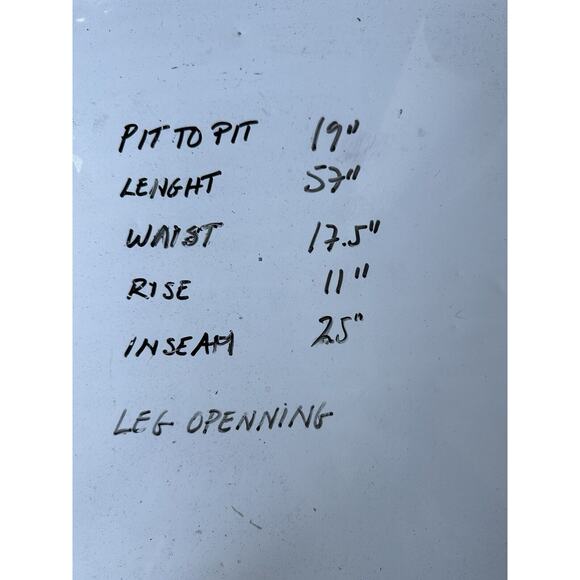 PIT TO PIT 19"
LENGHT 57"
WAIST 17.5"
RISE 11"
INSEAM 25"
LEG OPENNING